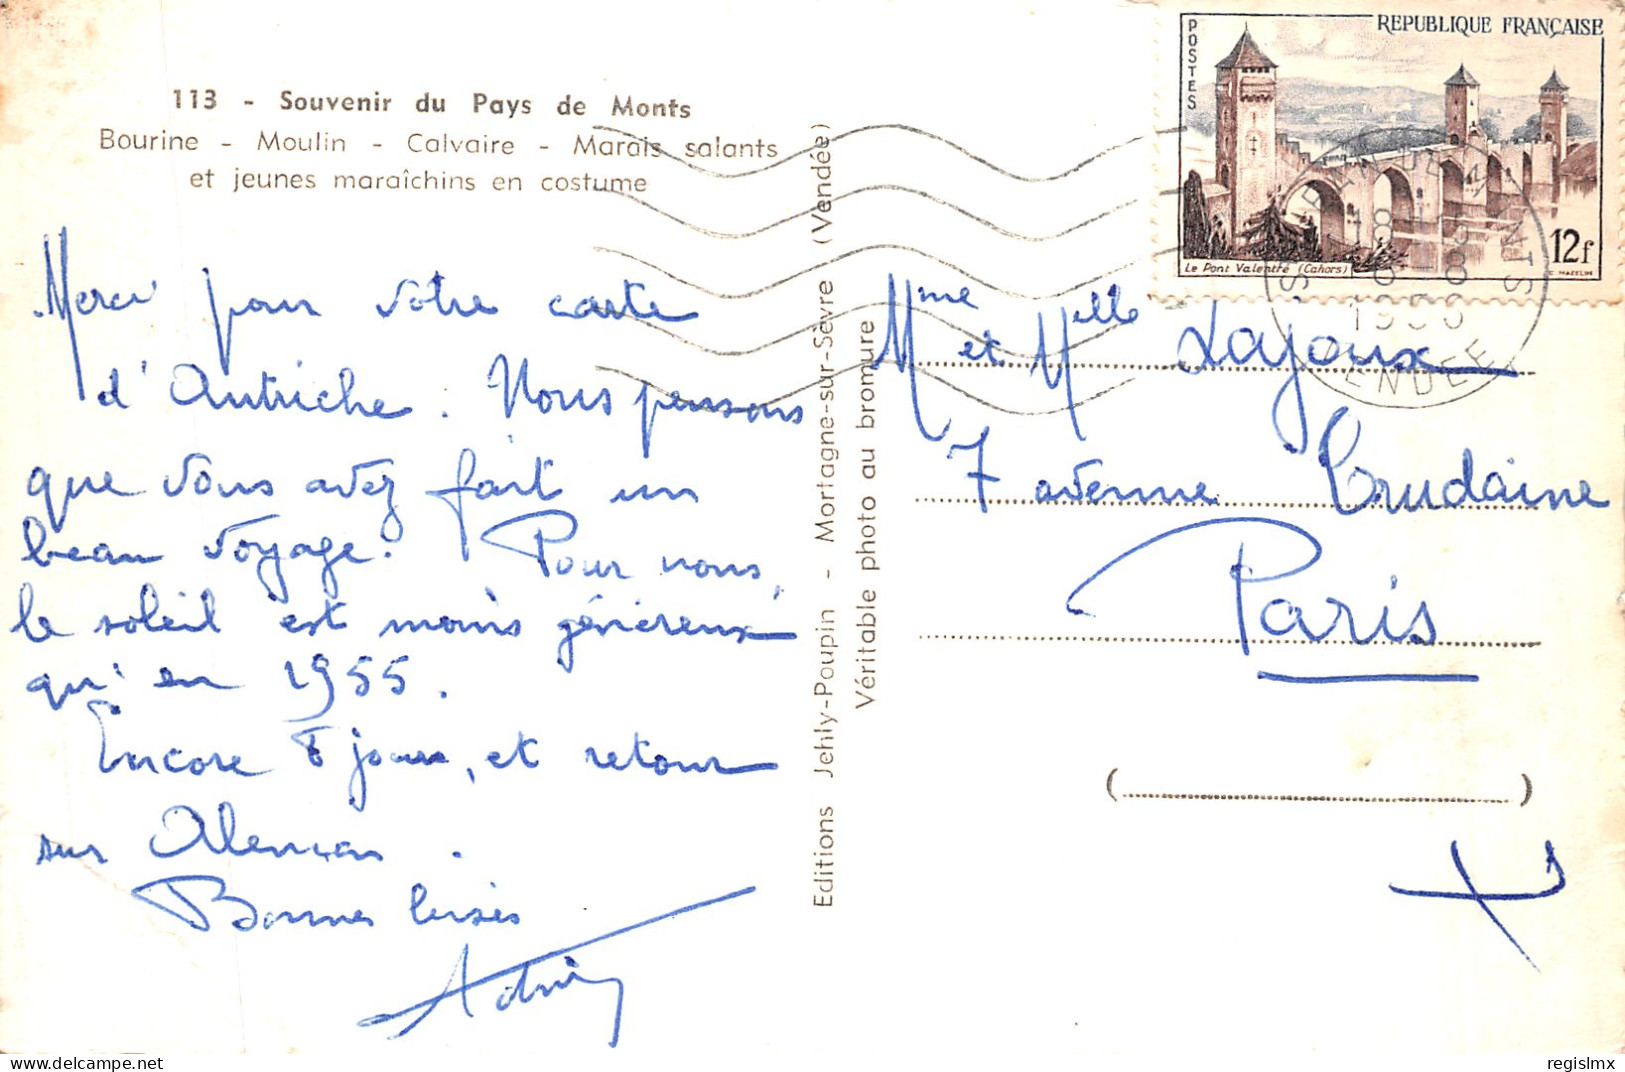 113 - Souvenir du Pays de Monts
Bourine - Moulin - Calvaire - Marais salants
et jeunes maraîchins en costume
Merci pour votre carte
d'Autriche. Nous pensons
que vous avez fait un
beau voyage. Pour nous,
le soleil est moins généreux
qu'en 1955.
Encore 8 jours, et retour
sur Alençon.
Bonnes bises
Editions Jehly-Poupin - Mortagne-sur-Sèvre (Vendée)
Véritable photo au bromure
REPUBLIQUE FRANÇAISE
POSTES
Le Pont Valentré (Cahors)
12f
C. MAZELIN
ST JEAN DE MONTS
18
VENDEE
Mme et Melle Lajoux
7 avenue Trudaine
Paris
(          )
regislmx